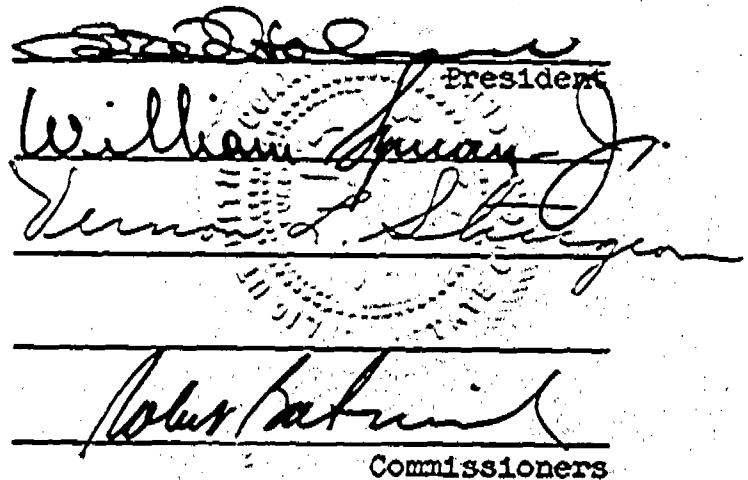 Holmes
President
William Symons Jr.
Vernon L. Sturgeon
Robert Batinovich
Commissioners